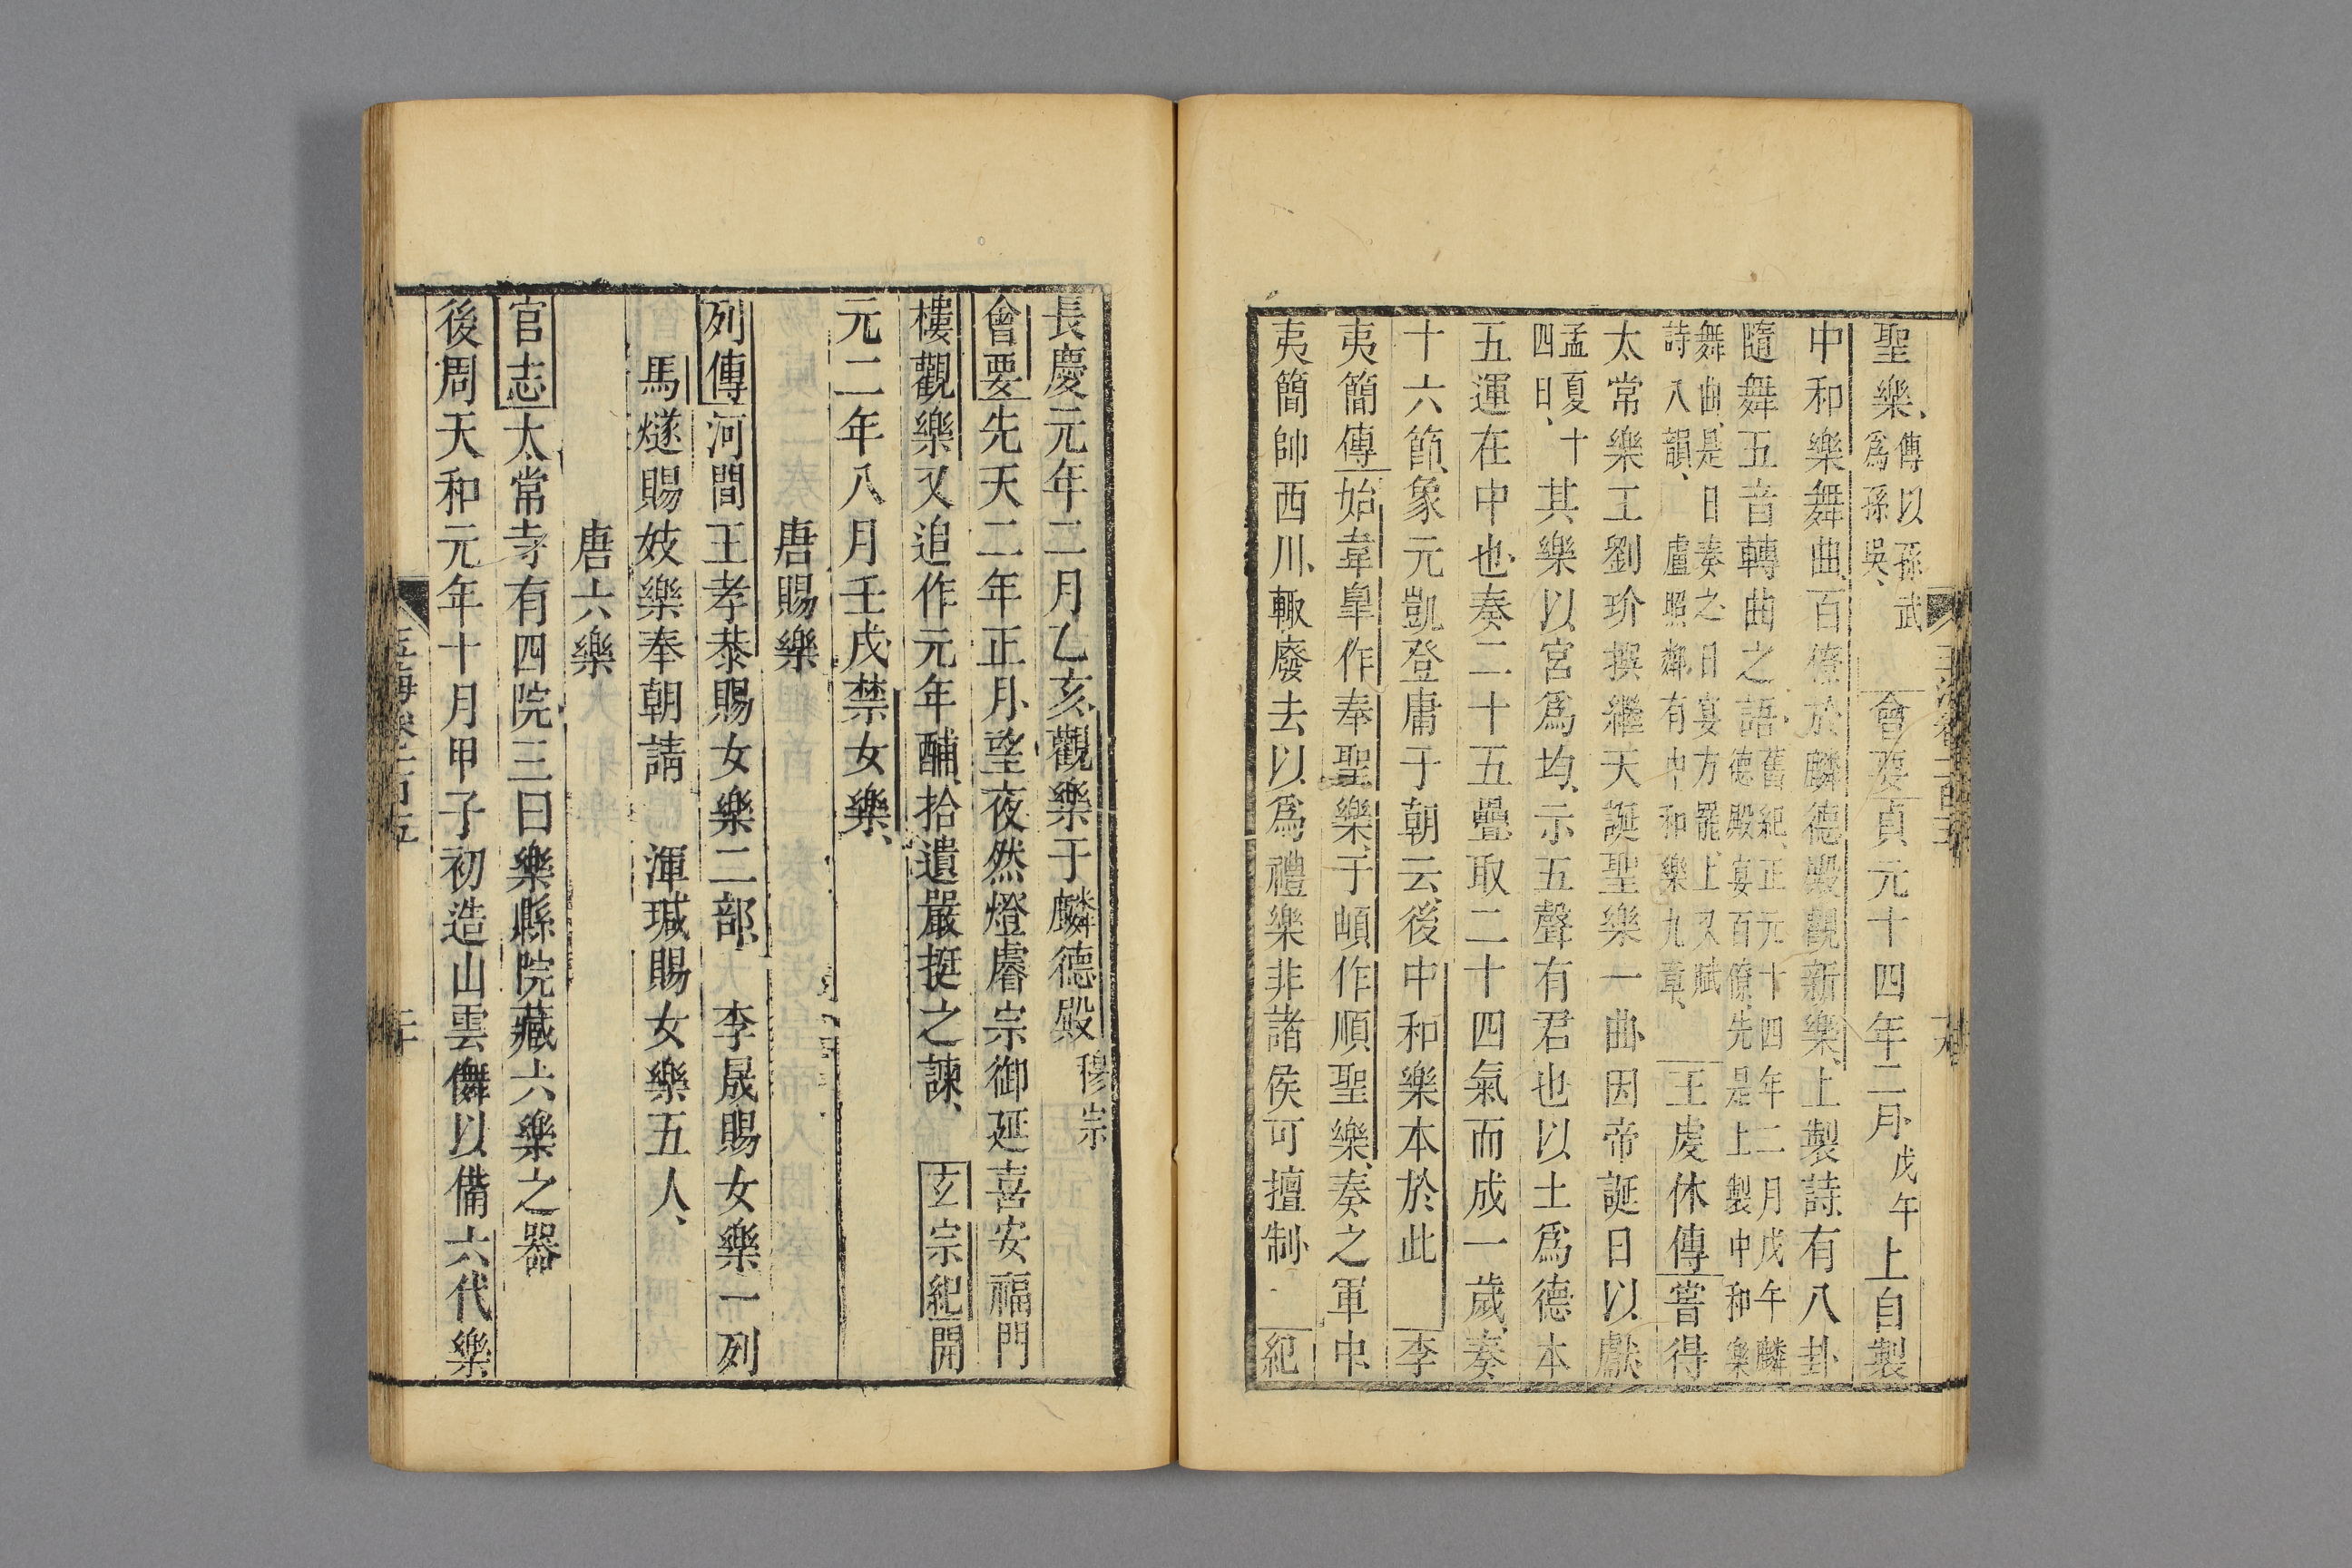 聖樂、傳以孫武爲孫吳、會要貞元十四年二月戊午上自製
中和樂舞曲、百僚於麟德殿觀新樂、上製詩、有八卦
隨舞五音轉曲之語、舊紀、正元十四年二月戊午麟德殿宴百僚、先是上製中和樂
舞曲、是日奏之、日宴方罷、上又賦詩八韻、盧照鄰有中和樂九章、王虔休傳嘗得
太常樂工劉玠撰繼天誕聖樂一曲、因帝誕日以獻
孟夏十四日、其樂以宮爲均、示五聲有君也、以土爲德、本
五運在中也、奏二十五疊、取二十四氣而成一歲、奏
十六節、象元凱登庸于朝云、後中和樂本於此 李
夷簡傳始韋臯作奉聖樂、于頔作順聖樂、奏之軍中、
夷簡帥西川、輙廢去、以爲禮樂非諸侯可擅制、紀
長慶元年二月乙亥、觀樂于麟德殿穆宗
會要先天二年正月、望夜然燈、睿宗御延喜安福門
樓觀樂又追作元年酺、拾遺嚴挺之諫、玄宗紀開
元二年八月壬戌禁女樂、
唐賜樂
列傳河間王孝恭賜女樂二部、李晟賜女樂一列
馬燧賜妓樂奉朝請 渾瑊賜女樂五人、
唐六樂
官志太常寺有四院、三曰樂縣院藏六樂之器
後周天和元年十月甲子初造山雲儛以備六代樂